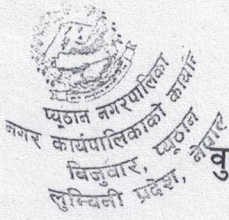 प्यूठान नगरपालिका
नगर कार्यपालिकाको कार्या
बिजुवार, प्यूठान
लुम्बिनी प्रदेश, नेपाल
वु